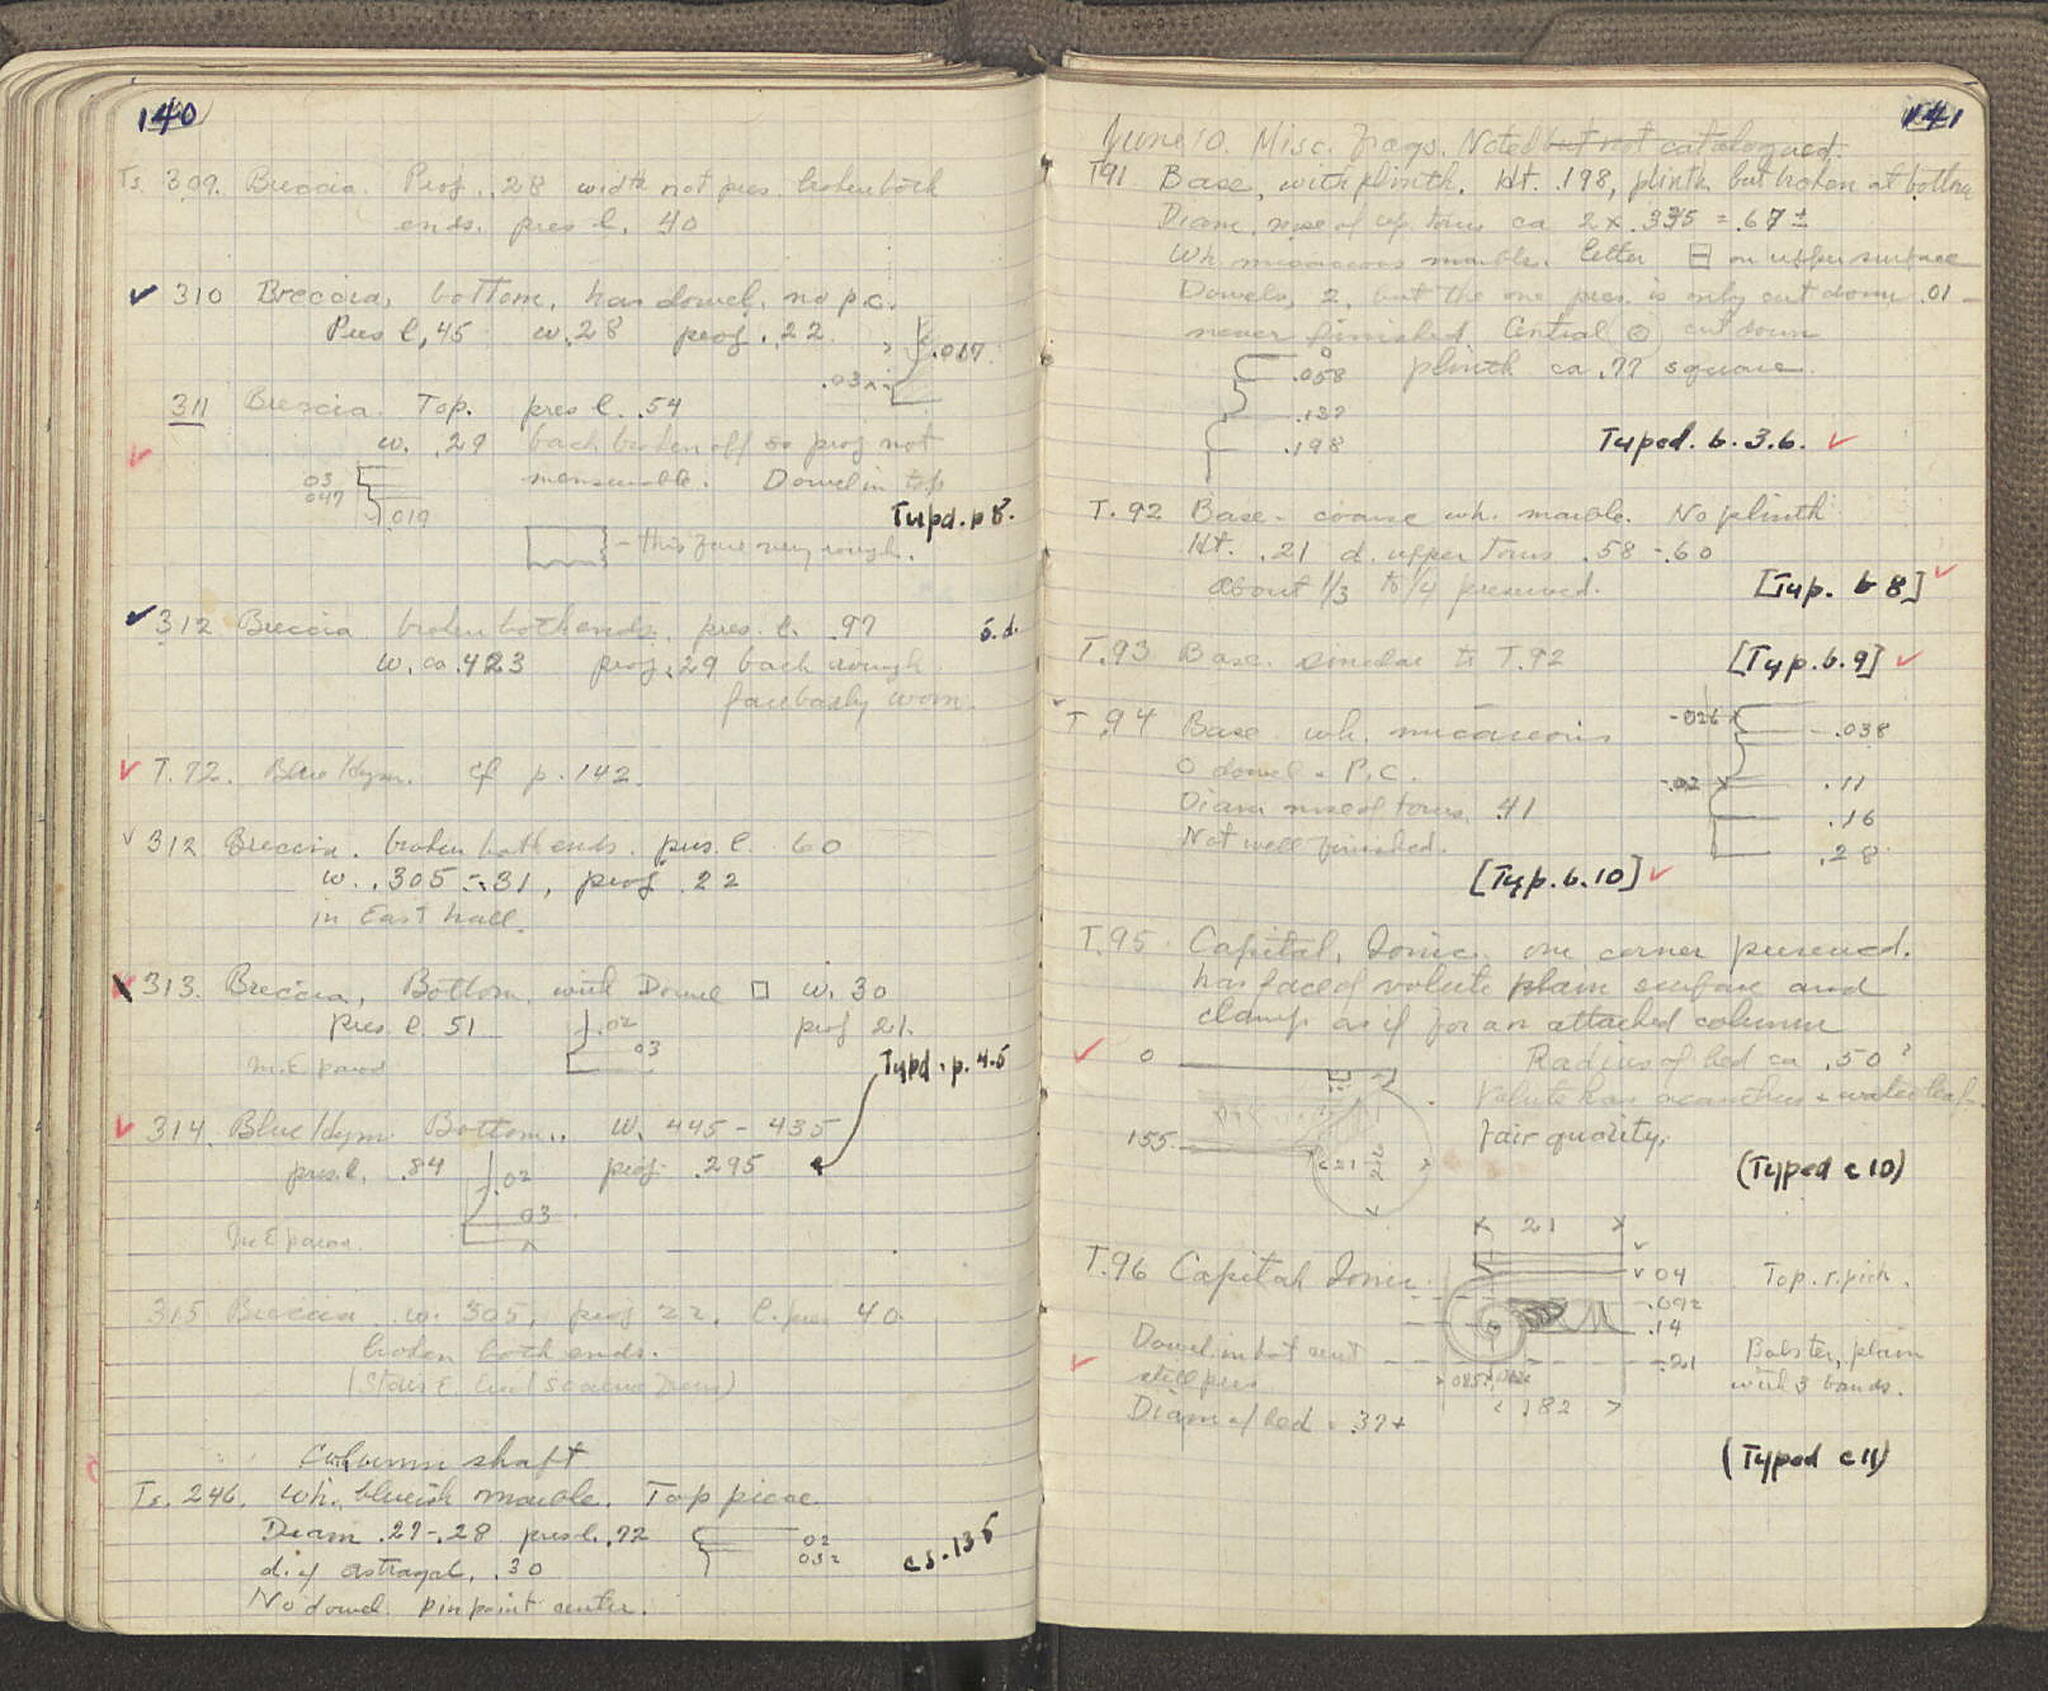 140
Ts. 309. Breccia. Proj. .28 width not pres. broken both
ends. pres l. 40
310 Breccia, bottom, has dowel, no p.c.
Pres l. 45 w. 28 proj. .22
.017
.03
311 Breccia. Top. pres l. .54
w. .29 back broken off so proj not
measurable. Dowel in top
03
047
.019
Typd. p 5.
- this face very rough.
312 Breccia broken both ends. pres. l. .97 s.d.
w. ca .423 proj. .29 back rough
face badly worn.
T. 72. Blue Hym. cf p. 142.
312 Breccia. broken both ends. pres. l. 60
w. .305 - .31, proj .22
in East hall.
313. Breccia, Bottom, with Dowel □ w. 30
pres. l. 51 .02 proj 21.
03
in E parod
Typd. p. 4.5
314. Blue Hym. Bottom. w. 445 - 435
pres. l. .84 .02 proj. .295
03
In E parod.
315 Breccia w. 305, proj 22, l. pres 40.
broken both ends.
Column shaft
Ts. 246. Wh. blueish marble. Top piece
Diam .27-.28 pres l. .72
02
032
cs. 135
d. of astragal, .30
No dowel. pin point center.
141
June 10. Misc. Frags. Noted but not catalogued.
T91 Base, with plinth. Ht. .198, plinth but broken at bottom
Diam, nose of up. torus ca 2 x .335 = .67 ±
Wh. micaceous marble. letter 日 on upper surface
Dowels, 2, but the one pres. is only cut down .01 -
never finished. Central ⊙ cut down
0
.058 plinth ca .77 square.
.137
.198
Typed. b. 3.6.
T. 92 Base - coarse wh. marble. No plinth
Ht. .21 d. upper torus .58 - .60
about 1/3 to 1/4 preserved.
[Typ. b 8]
T. 93 Base. similar to T.92 [Typ. b. 9]
T. 94 Base wh. micaceous
-.026
.038
□ dowel + P.C.
-.02
.11
Diam nose of torus .41
.16
Not well finished.
.28
[Typ. b. 10]
T. 95 Capital, Ionic, one corner preserved.
has face of volute plain surface and
clamp as if for an attached column
0
Radius of bed ca .50?
Volute has acanthus + water leaf.
155
Fair quality.
21
22
(Typed c 10)
21
T. 96 Capital Ionic
04
Top. r. pick.
.092
.14
.21
Dowel in bot cent
still pres
Bolster, plain
with 3 bands.
.182
Diam of bed = .37+
(Typed c 11)